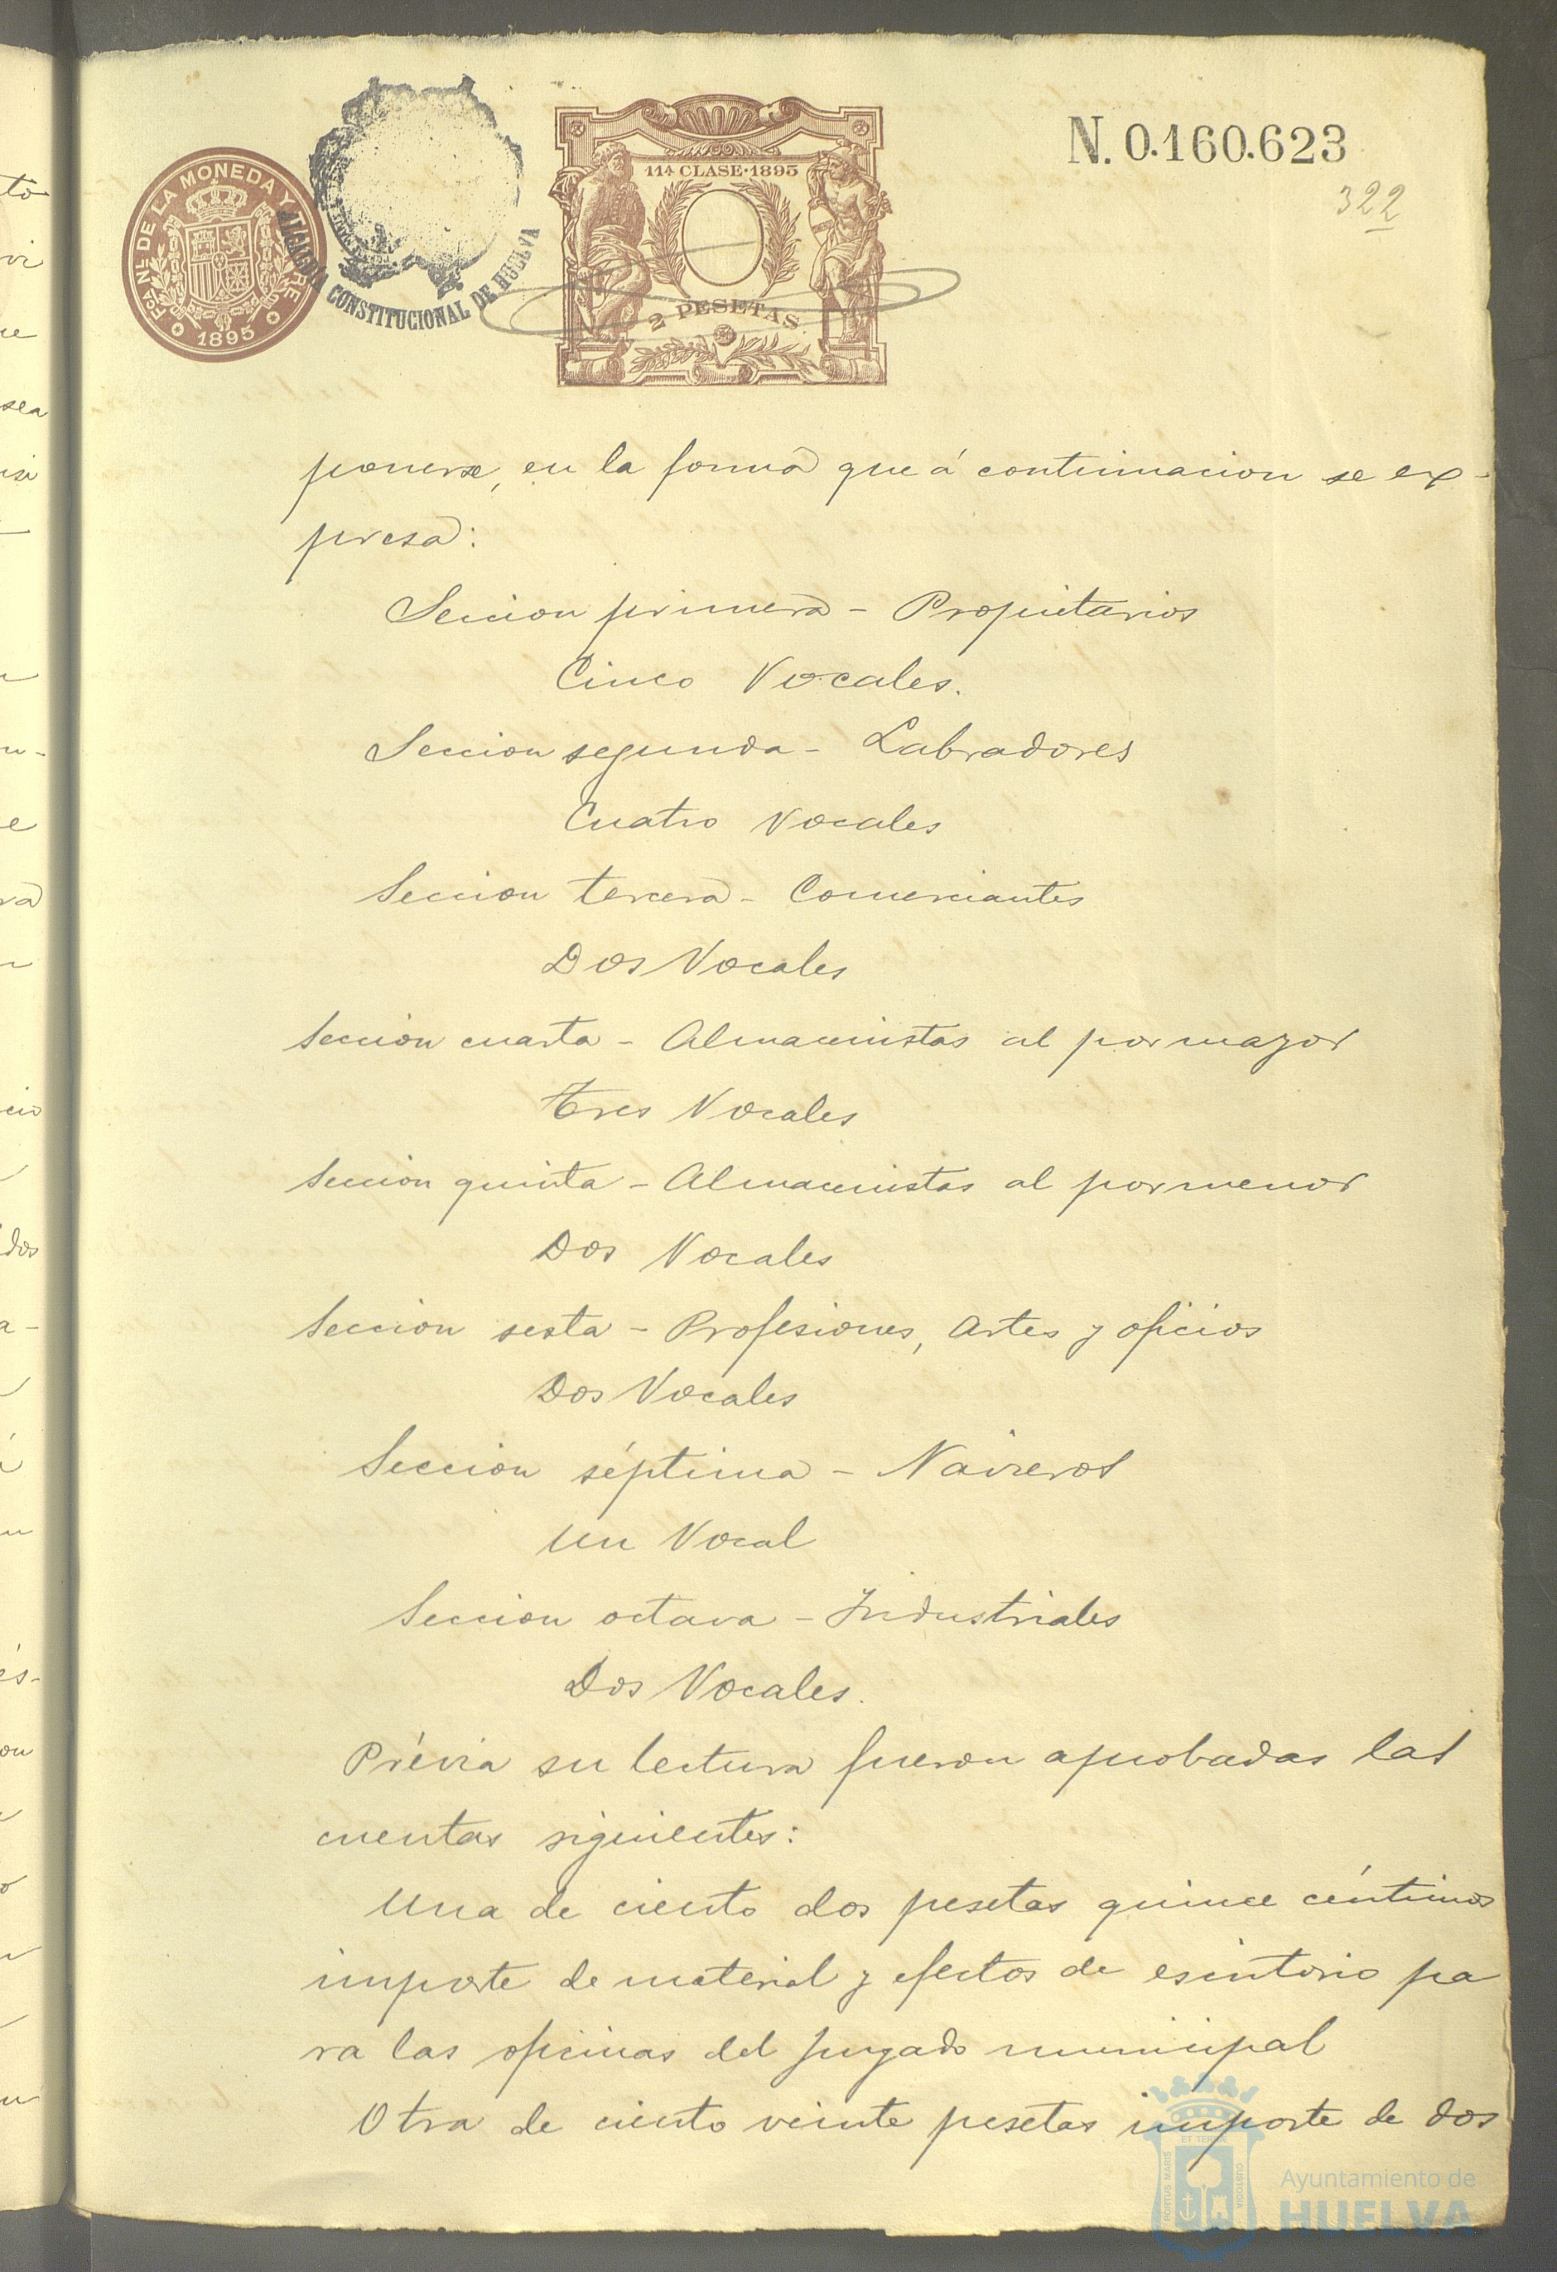 FCA. NL. DE LA MONEDA Y TIMBRE
1895
ALCALDIA CONSTITUCIONAL DE HUELVA
11ª CLASE·1895
2 PESETAS
N. 0.160.623
322
ponerse, en la forma que á continuacion se ex-
presa:
Seccion primera - Propietarios
Cinco Vocales.
Seccion segunda - Labradores
Cuatro Vocales
Seccion tercera - Comerciantes
Dos Vocales
Seccion cuarta - Almacenistas al por mayor
Tres Vocales
Seccion quinta - Almacenistas al por menor
Dos Vocales
Seccion sesta - Profesiones, Artes y oficios
Dos Vocales
Seccion séptima - Navieros
Un Vocal
Seccion octava - Industriales
Dos Vocales.
Prévia su lectura fueron aprobadas las
cuentas siguientes:
Una de ciento dos pesetas quince céntimos
importe de material y efectos de escritorio pa
ra las oficinas del Juzgado municipal
Otra de ciento veinte pesetas importe de dos
PORTUS MARIS
ET TERRÆ
CUSTODIA
Ayuntamiento de
HUELVA